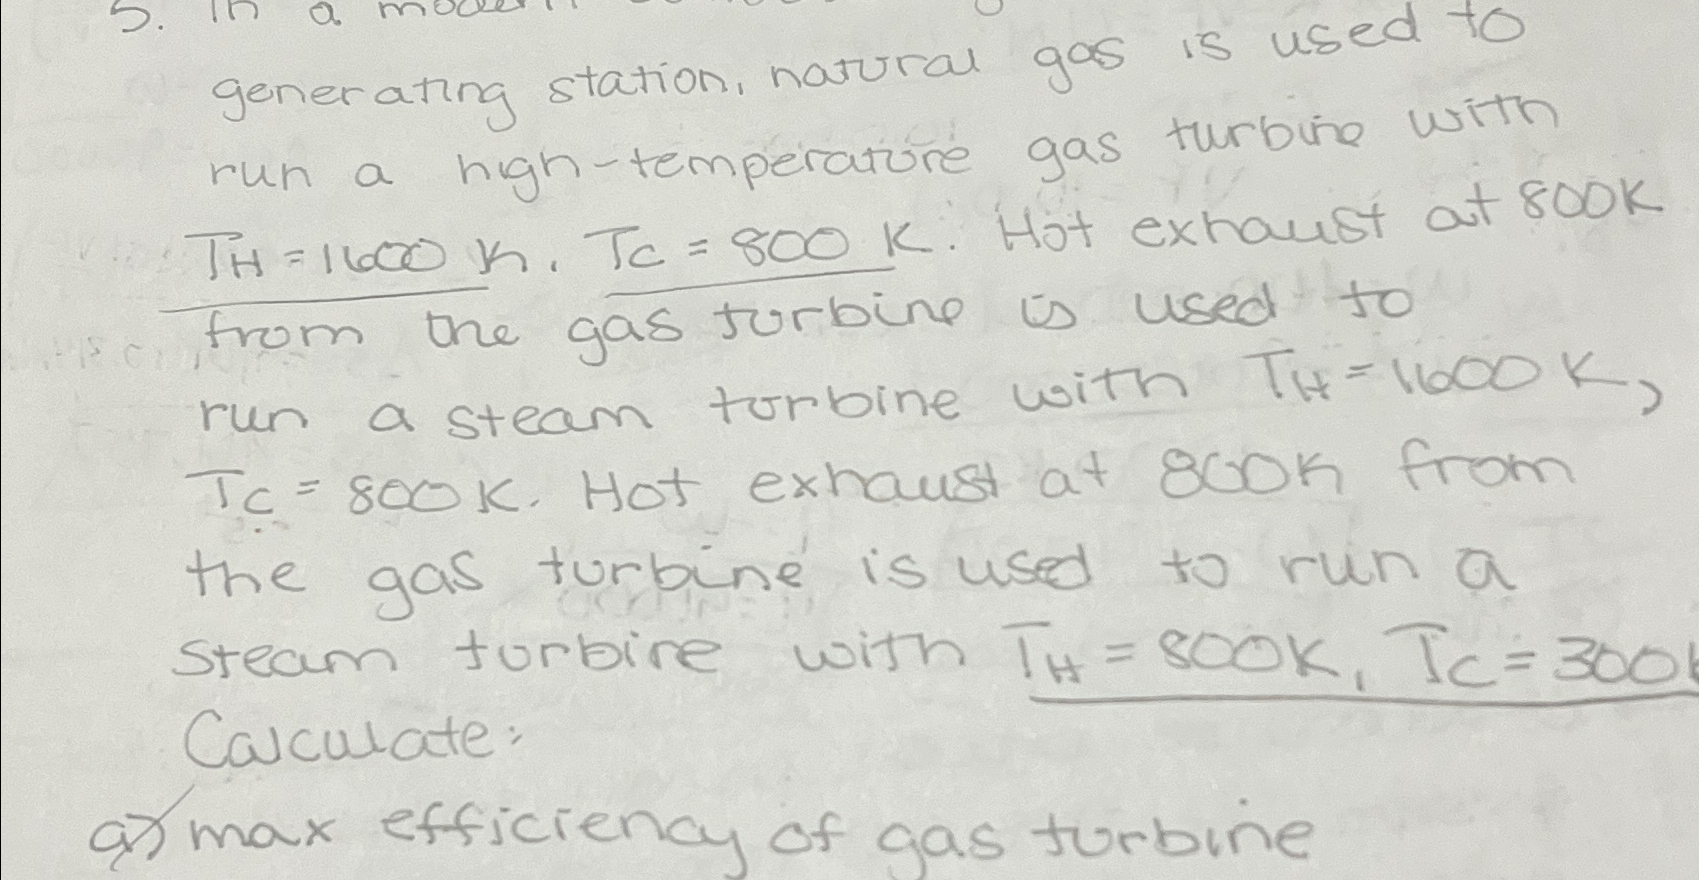 5. In a modern
generating station, natural gas is used to
run a high-temperature gas turbine with
TH = 1600 K, TC = 800 K. Hot exhaust at 800K
from the gas turbine is used to
run a steam turbine with TH = 1600 K,
TC = 800K. Hot exhaust at 800K from
the gas turbine is used to run a
steam turbine with TH = 800K, TC = 300K
Calculate:
a) max efficiency of gas turbine